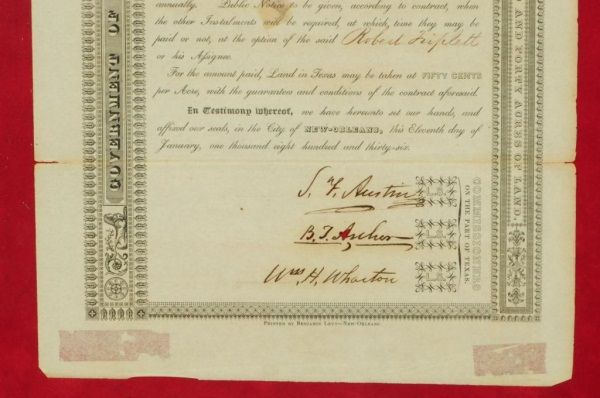 annually. Public Notice to be given, according to contract, when
the other Instalments will be required, at which, time they may be
paid or not, at the option of the said Robert Triplett
or his Assignee.
For the amount paid, Land in Texas may be taken at FIFTY CENTS
per Acre, with the guarantees and conditions of the contract aforesaid.
In Testimony whereof, we have hereunto set our hands, and
affixed our seals, in the City of NEW-ORLEANS, this Eleventh day of
January, one thousand eight hundred and thirty-six.
S. F. Austin L.S.
B. T. Archer L.S.
Wm. H. Wharton L.S.
COMMISSIONERS
ON THE PART OF TEXAS.
GOVERNMENT OF
AND FORTY ACRES OF LAND.
PRINTED BY BENJAMIN LEVY—NEW-ORLEANS.